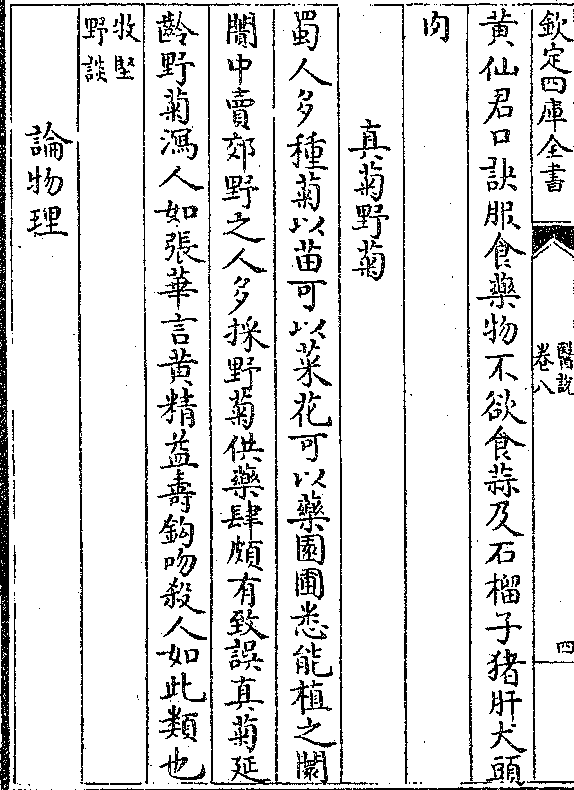 欽定四庫全書
醫說
卷八
四
黄仙君口訣服食藥物不欲食蒜及石榴子猪肝犬頭
肉
真菊野菊
蜀人多種菊以苗可以菜花可以藥園圃悉能植之闤
闠中賣郊野之人多採野菊供藥肆頗有致誤真菊延
齡野菊瀉人如張華言黄精益壽鈎吻殺人如此類也
牧竪
野談
論物理